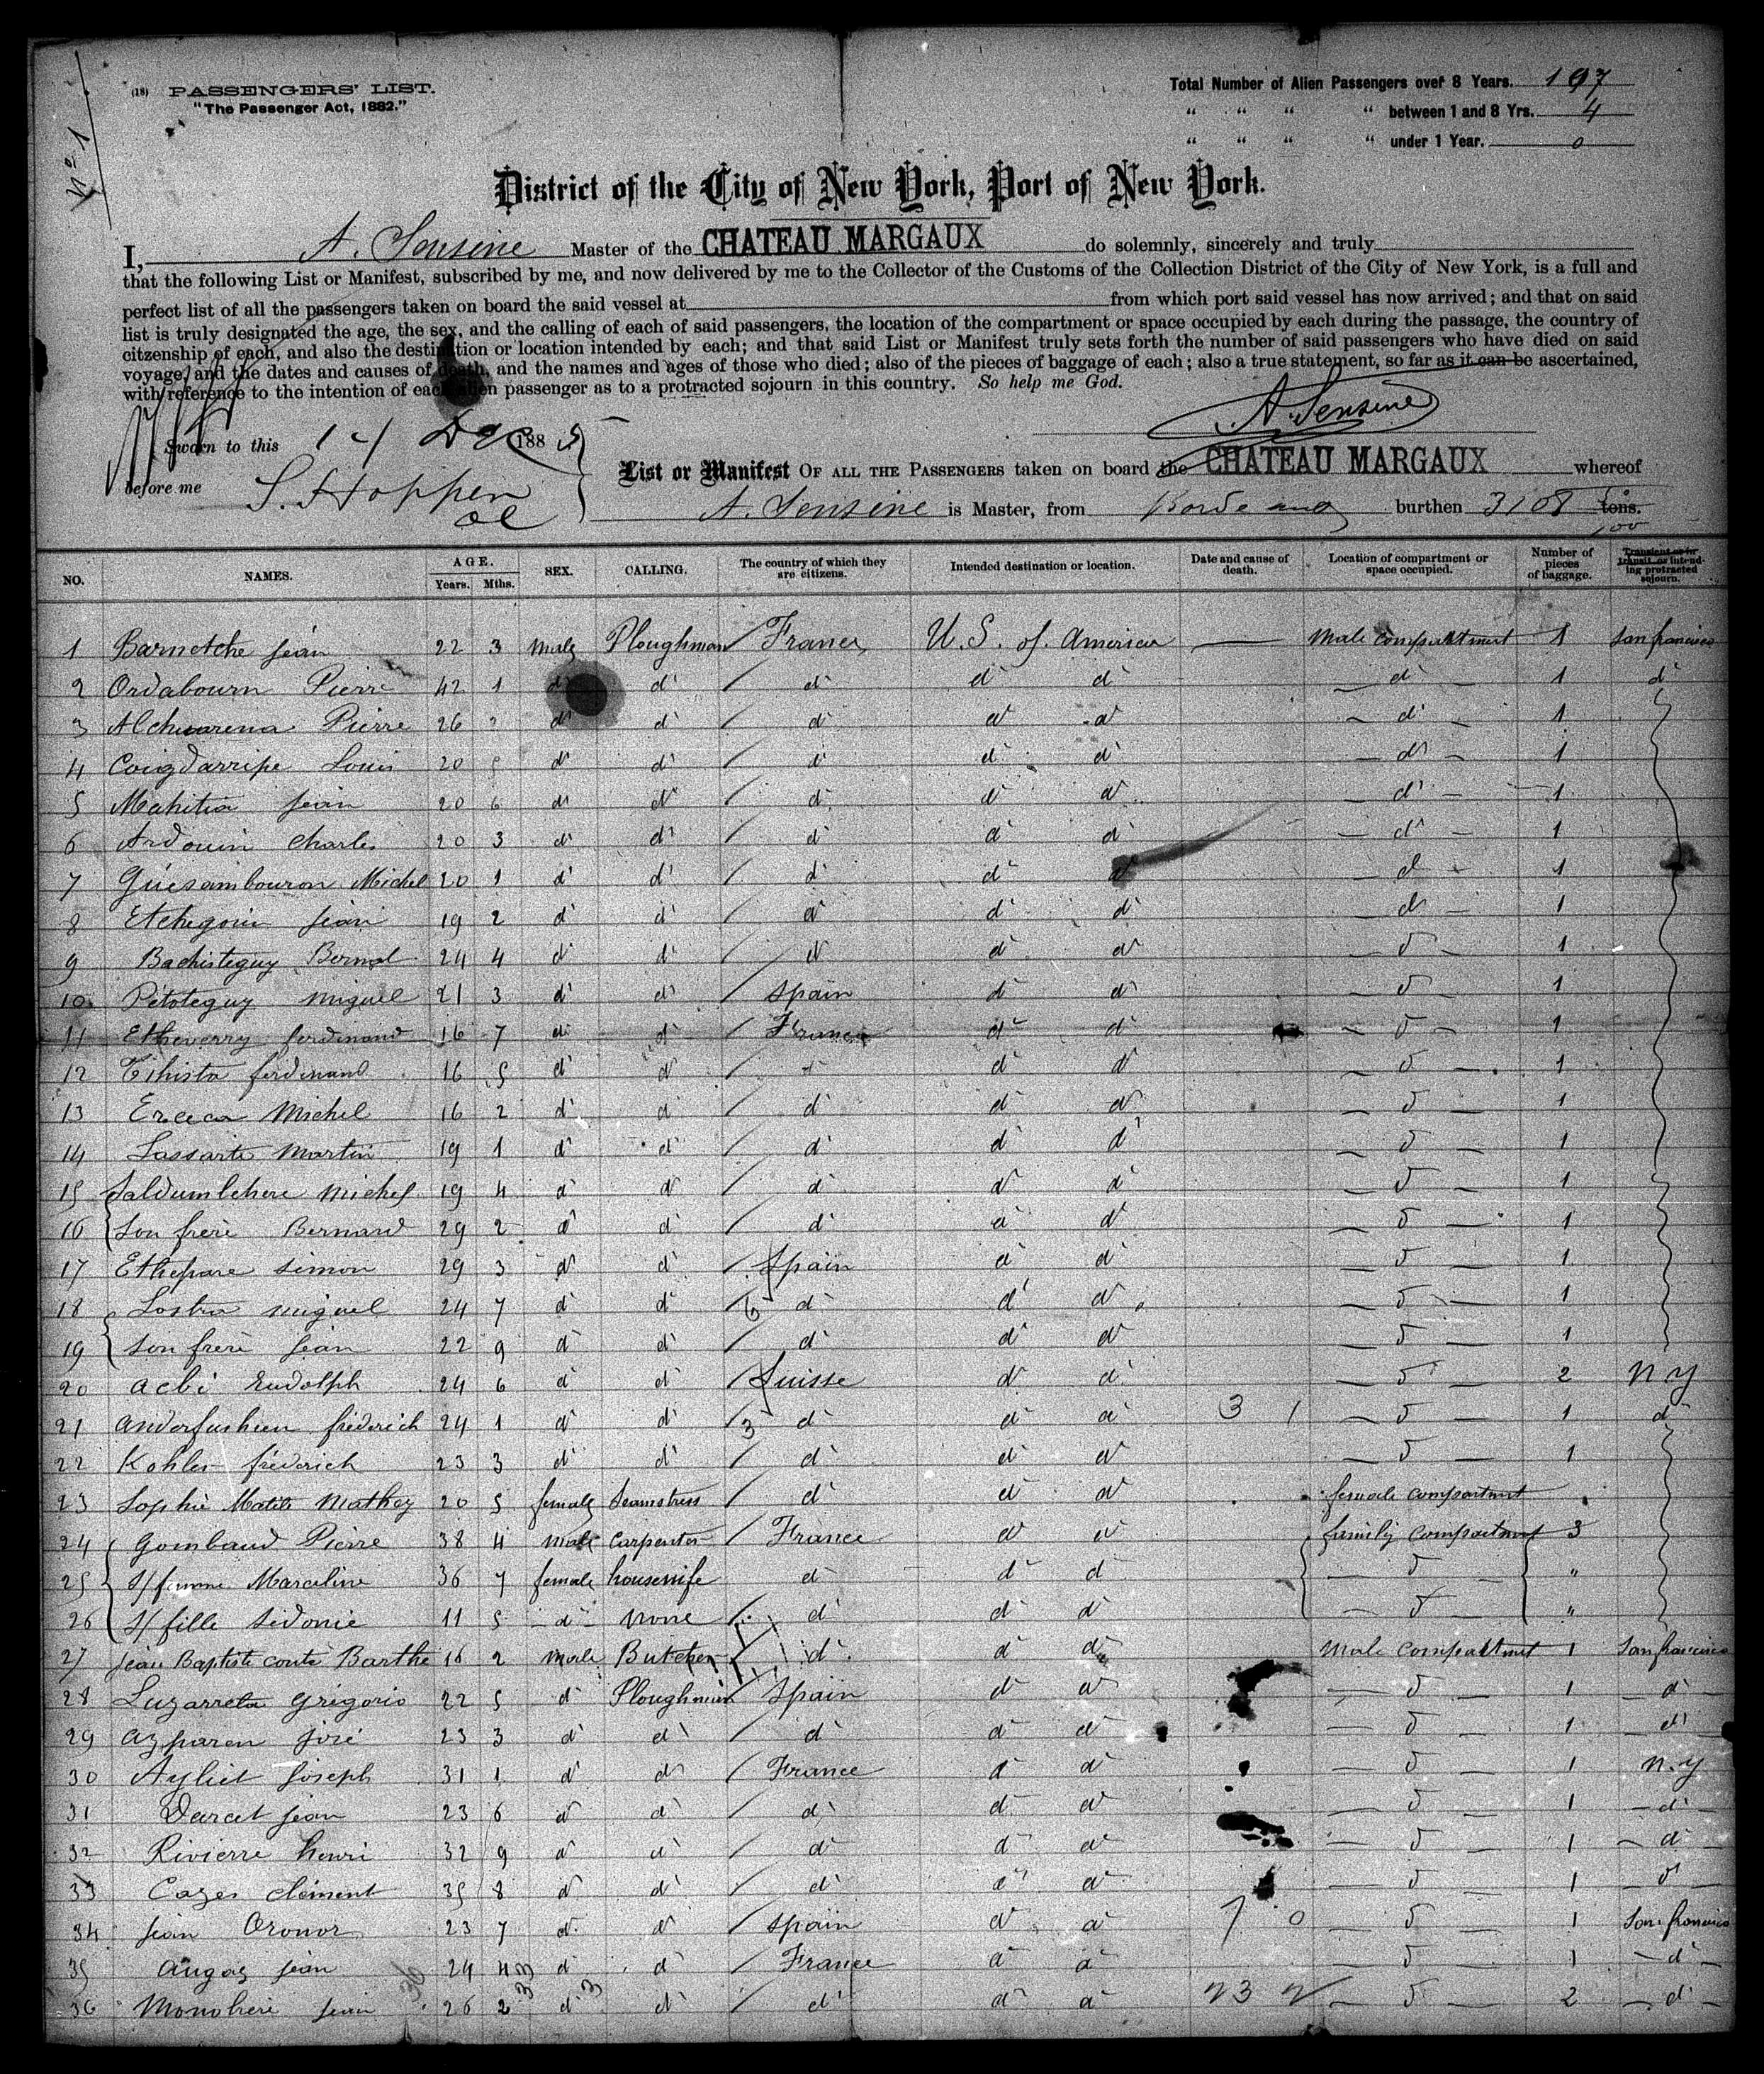 No 1
(18) PASSENGERS' LIST.
"The Passenger Act, 1882."
Total Number of Alien Passengers over 8 Years. 197
" " " " between 1 and 8 Yrs. 4
" " " " under 1 Year. 0
District of the City of New York, Port of New York.
I, A. Sensine Master of the CHATEAU MARGAUX do solemnly, sincerely and truly
that the following List or Manifest, subscribed by me, and now delivered by me to the Collector of the Customs of the Collection District of the City of New York, is a full and
perfect list of all the passengers taken on board the said vessel at from which port said vessel has now arrived; and that on said
list is truly designated the age, the sex, and the calling of each of said passengers, the location of the compartment or space occupied by each during the passage, the country of
citzenship of each, and also the destination or location intended by each; and that said List or Manifest truly sets forth the number of said passengers who have died on said
voyage, and the dates and causes of death, and the names and ages of those who died; also of the pieces of baggage of each; also a true statement, so far as it can be ascertained,
with reference to the intention of each alien passenger as to a protracted sojourn in this country. So help me God.
A. Sensine
Sworn to this 14 Dec 1885
before me S. Hopper
List or Manifest OF ALL THE PASSENGERS taken on board the CHATEAU MARGAUX whereof
A. Sensine is Master, from Bordeaux burthen 3108 tons.
NO. NAMES. AGE. Years. Mths. SEX. CALLING. The country of which they are citizens. Intended destination or location. Date and cause of death. Location of compartment or space occupied. Number of pieces of baggage. Transient or in transit, or intending protracted sojourn.
1 Barnetche Jean 22 3 Male Ploughman France U.S. of America — Male compartment 1 San francisco
2 Ordabourn Pierre 42 1 d° d° d° d° d° d° 1 d°
3 Pierre 26 d° d° d° d° d° d° 1
4 Coigdarripe Louis 20 5 d° d° d° d° d° d° 1
5 Mahitia Jean 20 6 d° d° d° d° d° d° 1
6 Ardouin Charles 20 3 d° d° d° d° d° d° 1
7 Guesambouron Michel 20 1 d° d° d° d° d° d° 1
8 Etchegoin Jean 19 2 d° d° d° d° d° d° 1
9 Bachisteguy Bernal 24 4 d° d° d° d° d° d° 1
10 Petoteguy Miguel 21 3 d° d° Spain d° d° d° 1
11 Etheverry ferdinand 16 7 d° d° France d° d° d° 1
12 ferdinand 16 5 d° d° d° d° d° d° 1
13 Erceca Michel 16 2 d° d° d° d° d° d° 1
14 Lassarte Martin 19 1 d° d° d° d° d° d° 1
15 Saldumbehere Michel 19 4 d° d° d° d° d° d° 1
16 Son frere Bernard 29 2 d° d° d° d° d° d° 1
17 Ethepare Simon 29 3 d° d° Spain d° d° d° 1
18 Lostra Miguel 24 7 d° d° 6 d° d° d° d° 1
19 Son frere Jean 22 9 d° d° d° d° d° d° 1
20 Aebi Rudolph 24 6 d° d° Suisse d° d° d° 2 N Y
21 Anderfuhren frederich 24 1 d° d° 3 d° d° d° 3 1 d° 1 d°
22 Kohler frederich 23 3 d° d° d° d° d° d° 1
23 Sophie Mathey 20 5 female Seamstress d° d° d° female compartment
24 Gombaud Pierre 38 4 Male Carpenter France d° d° family compartment 3
25 S/femme Marceline 36 7 female housewife d° d° d° d° "
26 S/fille Sidonie 11 5 d° None d° d° d° d° "
27 Jean Baptiste conte Barthe 16 2 Male Butcher d° d° d° Male compartment 1 San francisco
28 Luzarreta Grégorio 22 5 d° Ploughman Spain d° d° d° 1 d°
29 Azparen José 23 3 d° d° d° d° d° d° 1 d°
30 Ayliet Joseph 31 1 d° d° France d° d° d° 1 N.Y
31 Darcet Jean 23 6 d° d° d° d° d° d° 1 d°
32 Rivierre Henri 32 9 d° d° d° d° d° d° 1 d°
33 Cazes Clément 35 8 d° d° d° d° d° d° 1 d°
34 Jean Oronoz 23 7 d° d° Spain d° d° 7 0 d° 1 San francisco
35 Augaz Jean 24 4 d° d° France d° d° d° 1 d°
36 Monohere Jean 26 2 d° d° d° d° d° 23 2 d° 2 d°